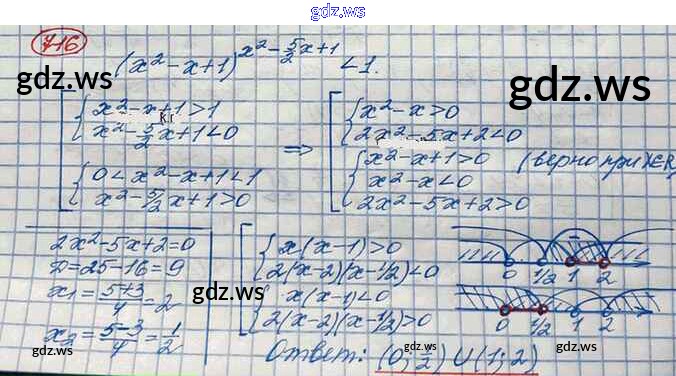 gdz.ws
716
(x² - x + 1)^(x² - 5/2 x + 1) < 1.
gdz.ws
gdz.ws
gdz.ws
[ { x² - x + 1 > 1
x² - 5/2 x + 1 < 0
{ 0 < x² - x + 1 < 1
x² - 5/2 x + 1 > 0
=> [ { x² - x > 0
2x² - 5x + 2 < 0
{ x² - x + 1 > 0 (верно при x∈R)
x² - x < 0
2x² - 5x + 2 > 0
2x² - 5x + 2 = 0
D = 25 - 16 = 9
x₁ = (5+3)/4 = 2
x₂ = (5-3)/4 = 1/2
[ { x(x-1) > 0
2(x-2)(x-1/2) < 0
{ x(x-1) < 0
2(x-2)(x-1/2) > 0
0 1/2 1 2
0 1/2 1 2
gdz.ws
Ответ: (0; 1/2) ∪ (1; 2)
gdz.ws
gdz.ws
gdz.ws
gdz.ws